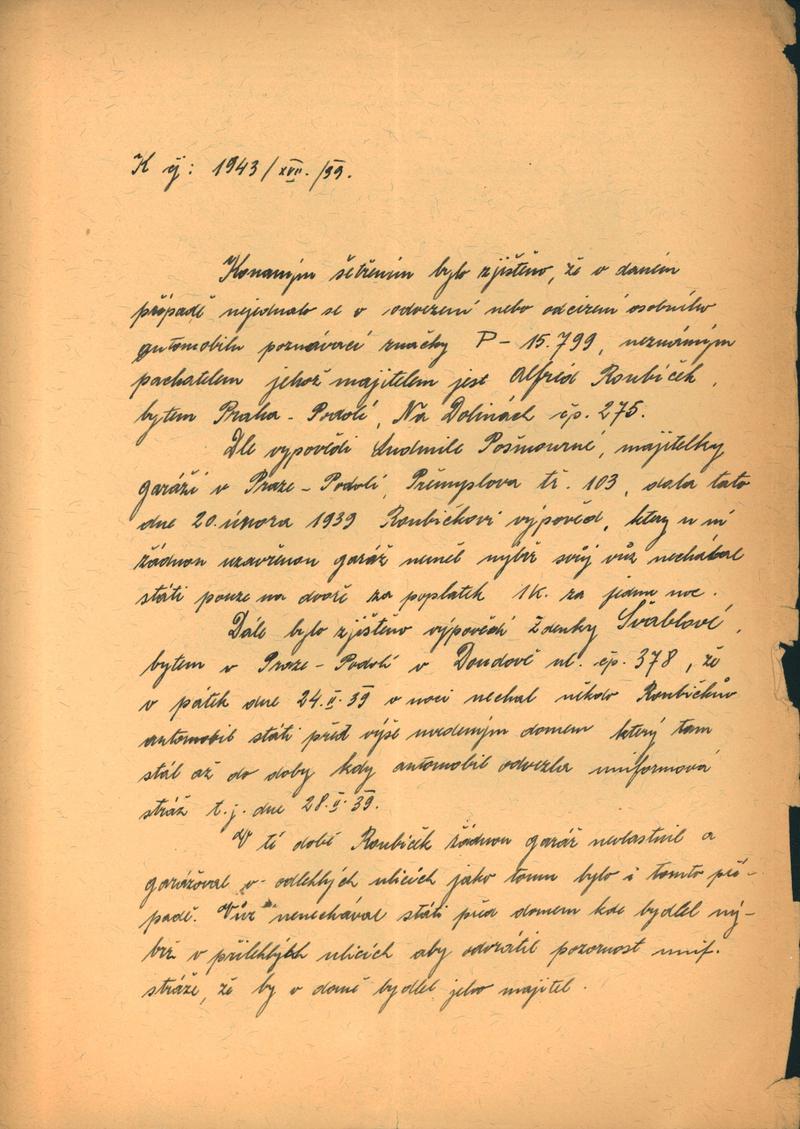 K čj: 1943/XVII./39.
Konaným šetřením bylo zjištěno, že v daném
případě nejednalo se o odvezení nebo odcizení osobního
automobilu poznávací značky P – 15.799, neznámým
pachatelem jehož majitelem jest Alfred Roubíček,
bytem Praha – Podolí, Na Dolinách čp. 275.
Dle výpovědi Ludmile Pošmourné, majitelky
garáží v Praze – Podolí, Přemyslova tř. 103, dala tato
dne 20. února 1939 Roubíčkovi výpověd, který u ní
žádnou uzavřenou garáž neměl nýbrž svůj vůz nechával
státi pouze na dvoře za poplatek 1K. za jednu noc.
Dále bylo zjištěno výpovědí Zdenky Šváblové,
bytem v Praze – Podolí v Doudově ul. čp. 378, že
v pátek dne 24.II.39 v noci nechal někdo Roubíčkův
automobil státi před výše uvedeným domem který tam
stál až do doby kdy automobil odvezla uniformová
stráž t.j. dne 28.II.39.
V té době Roubíček žádnou garáž nevlastnil a
garážoval v odlehlých ulicích jako tomu bylo i tomto pří-
padě. Vůz nenechával státi před domem kde bydlel ný-
brž v přilehlých ulicích aby odvrátil pozornost unif.
stráže, že by v domě bydlel jeho majitel.